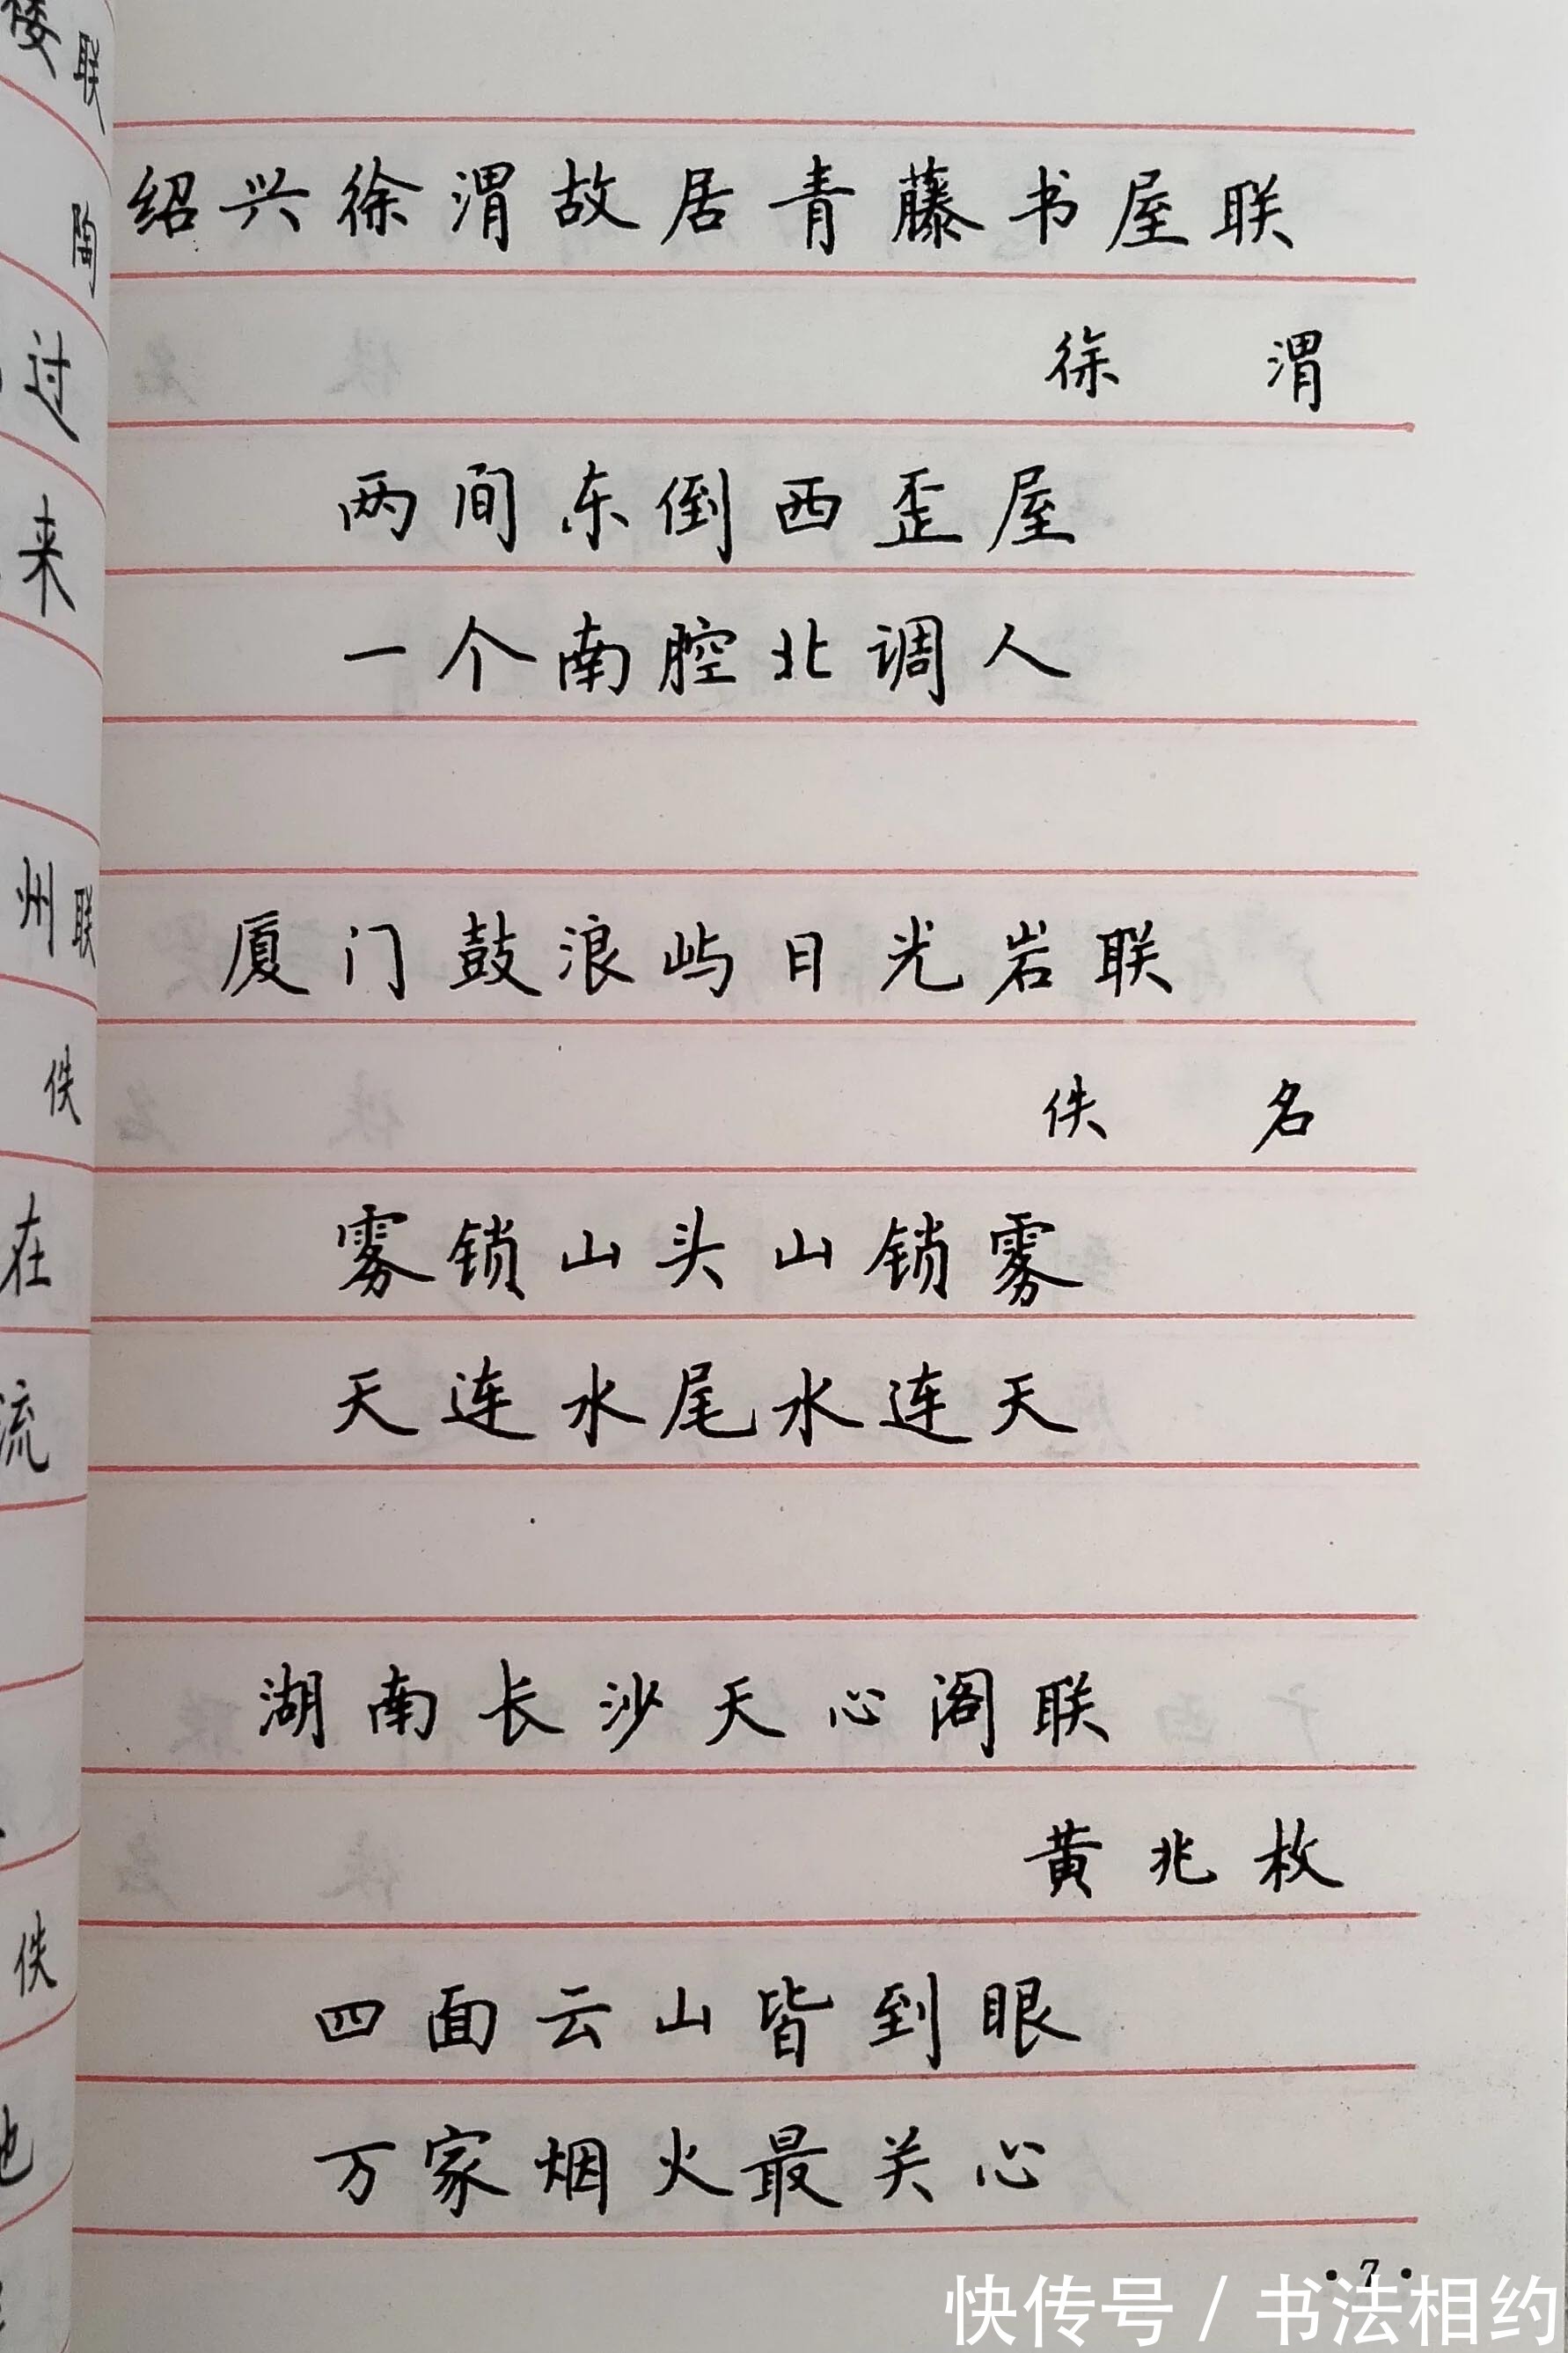 绍兴徐渭故居青藤书屋联
徐渭
两间东倒西歪屋
一个南腔北调人
厦门鼓浪屿日光岩联
佚名
雾锁山头山锁雾
天连水尾水连天
湖南长沙天心阁联
黄兆枚
四面云山皆到眼
万家烟火最关心
·7·
快传号/书法相约
楼联
陶
过
来
州联
佚
在
流
佚